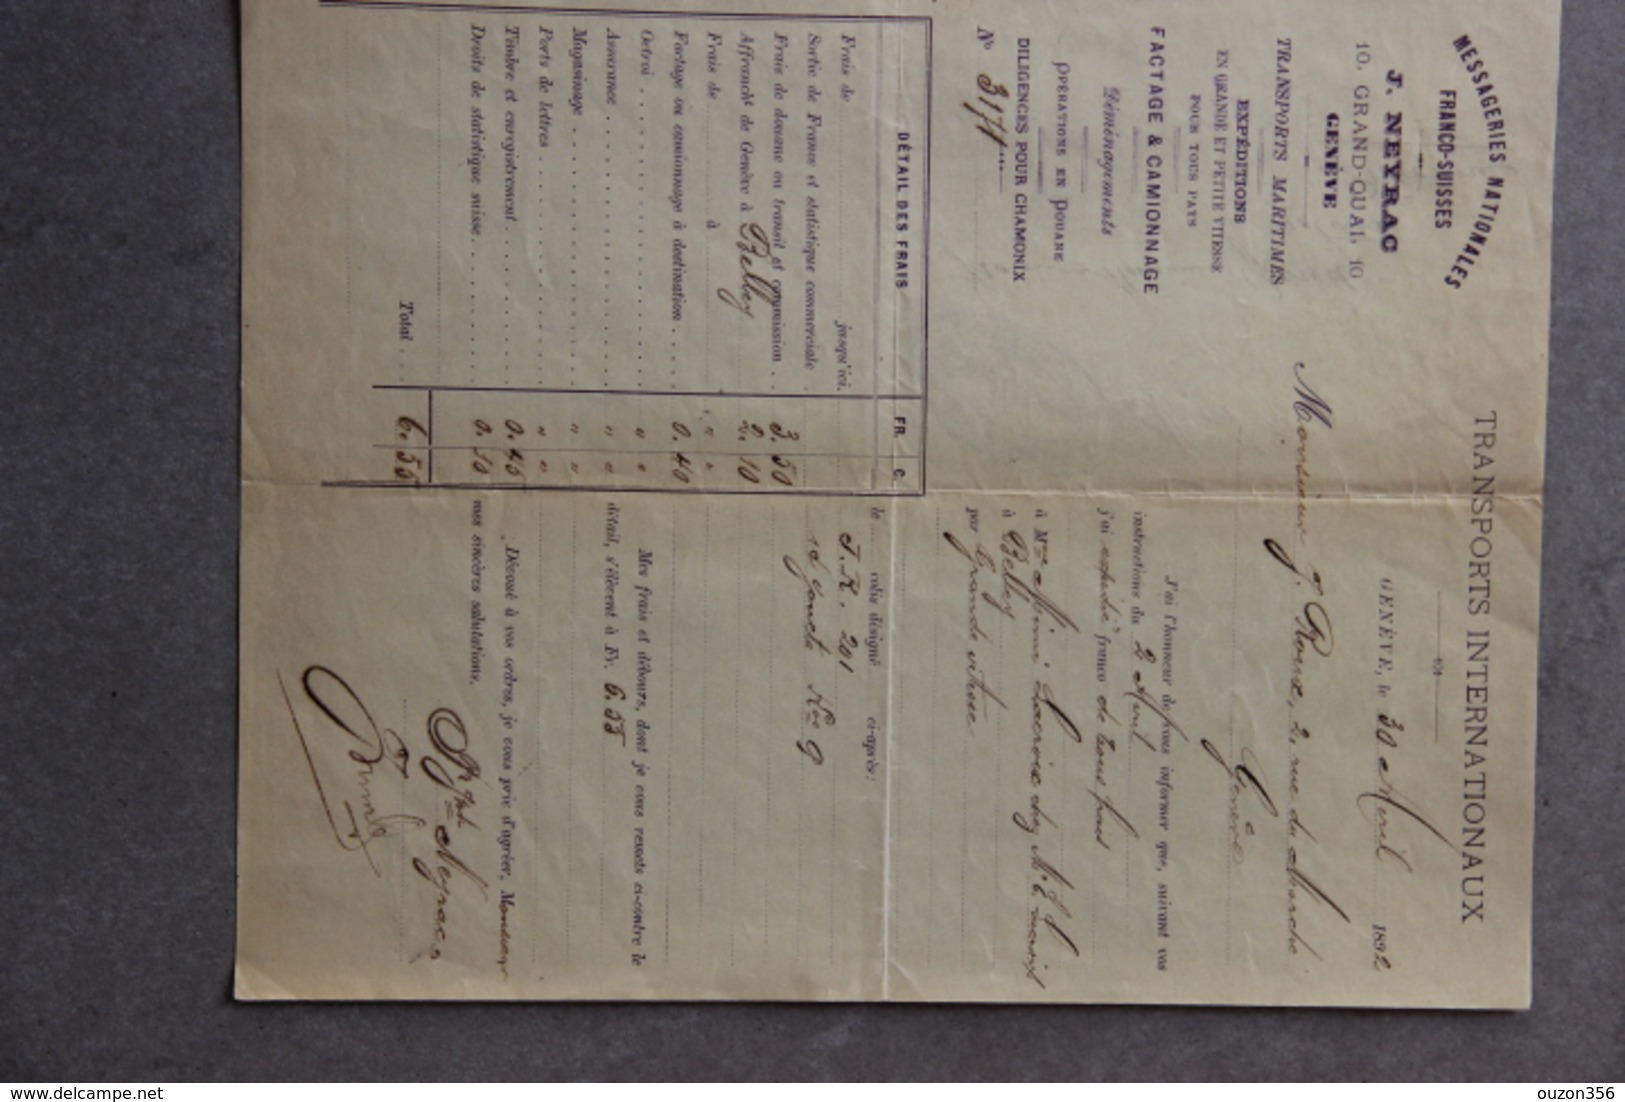 MESSAGERIES NATIONALES
FRANCO-SUISSES
J. NEYRAC
10, GRAND-QUAI, 10
GENÈVE
TRANSPORTS MARITIMES
EXPÉDITIONS
EN GRANDE ET PETITE VITESSE
POUR TOUS PAYS
FACTAGE & CAMIONNAGE
Déménagements
OPÉRATIONS EN DOUANE
DILIGENCES POUR CHAMONIX
No 3171
TRANSPORTS INTERNATIONAUX
GENÈVE, le 30 Avril 1892
Monsieur J. Roux, 2, rue du Marché
Genève
J'ai l'honneur de vous informer que, suivant vos
instructions du 2 Avril
j'ai expédié franco de tous frais
à Mme Mimi Lacroix chez Mr
à Belley
par Grande vitesse
le colis désigné ci-après:
J. R. 201
Kos 9
Mes frais et débours, dont je vous remets ci-contre le
détail, s'élèvent à Fr. 6.55
Dévoué à vos ordres, je vous prie d'agréer, Monsieur
mes sincères salutations.
Neyrac
DÉTAIL DES FRAIS FR. C.
Frais de jusqu'ici.
Sortie de France et statistique commerciale
Frais de douane ou transit et commission . . 3. 50
Affrancht de Genève à Belley 2. 10
Frais de à " "
Factage ou camionnage à destination . . . . 0. 40
Octroi . . . " "
Assurance . . . " "
Magasinage . . . " "
Ports de lettres . . . " "
Timbre et enregistrement . . . 0. 45
Droits de statistique suisse . . . 0. 10
Total . . . 6. 55
ouzon356